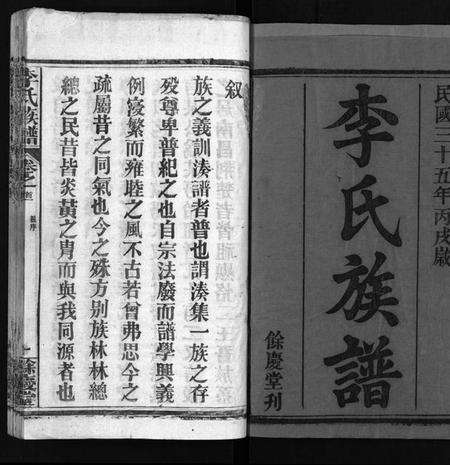 民國三十五年丙戌歲
李氏族譜
餘慶堂刊
叙
族之義訓湊譜者普也謂湊集一族之存
歿尊卑普紀之也自宗法廢而譜學興義
例寖繁而雍睦之風不古若曾弗思今之
疏屬昔之同氣也今之殊方别族林林總
總之民昔皆炎黃之冑而與我同源者也
李氏族譜
卷之一
餘慶堂